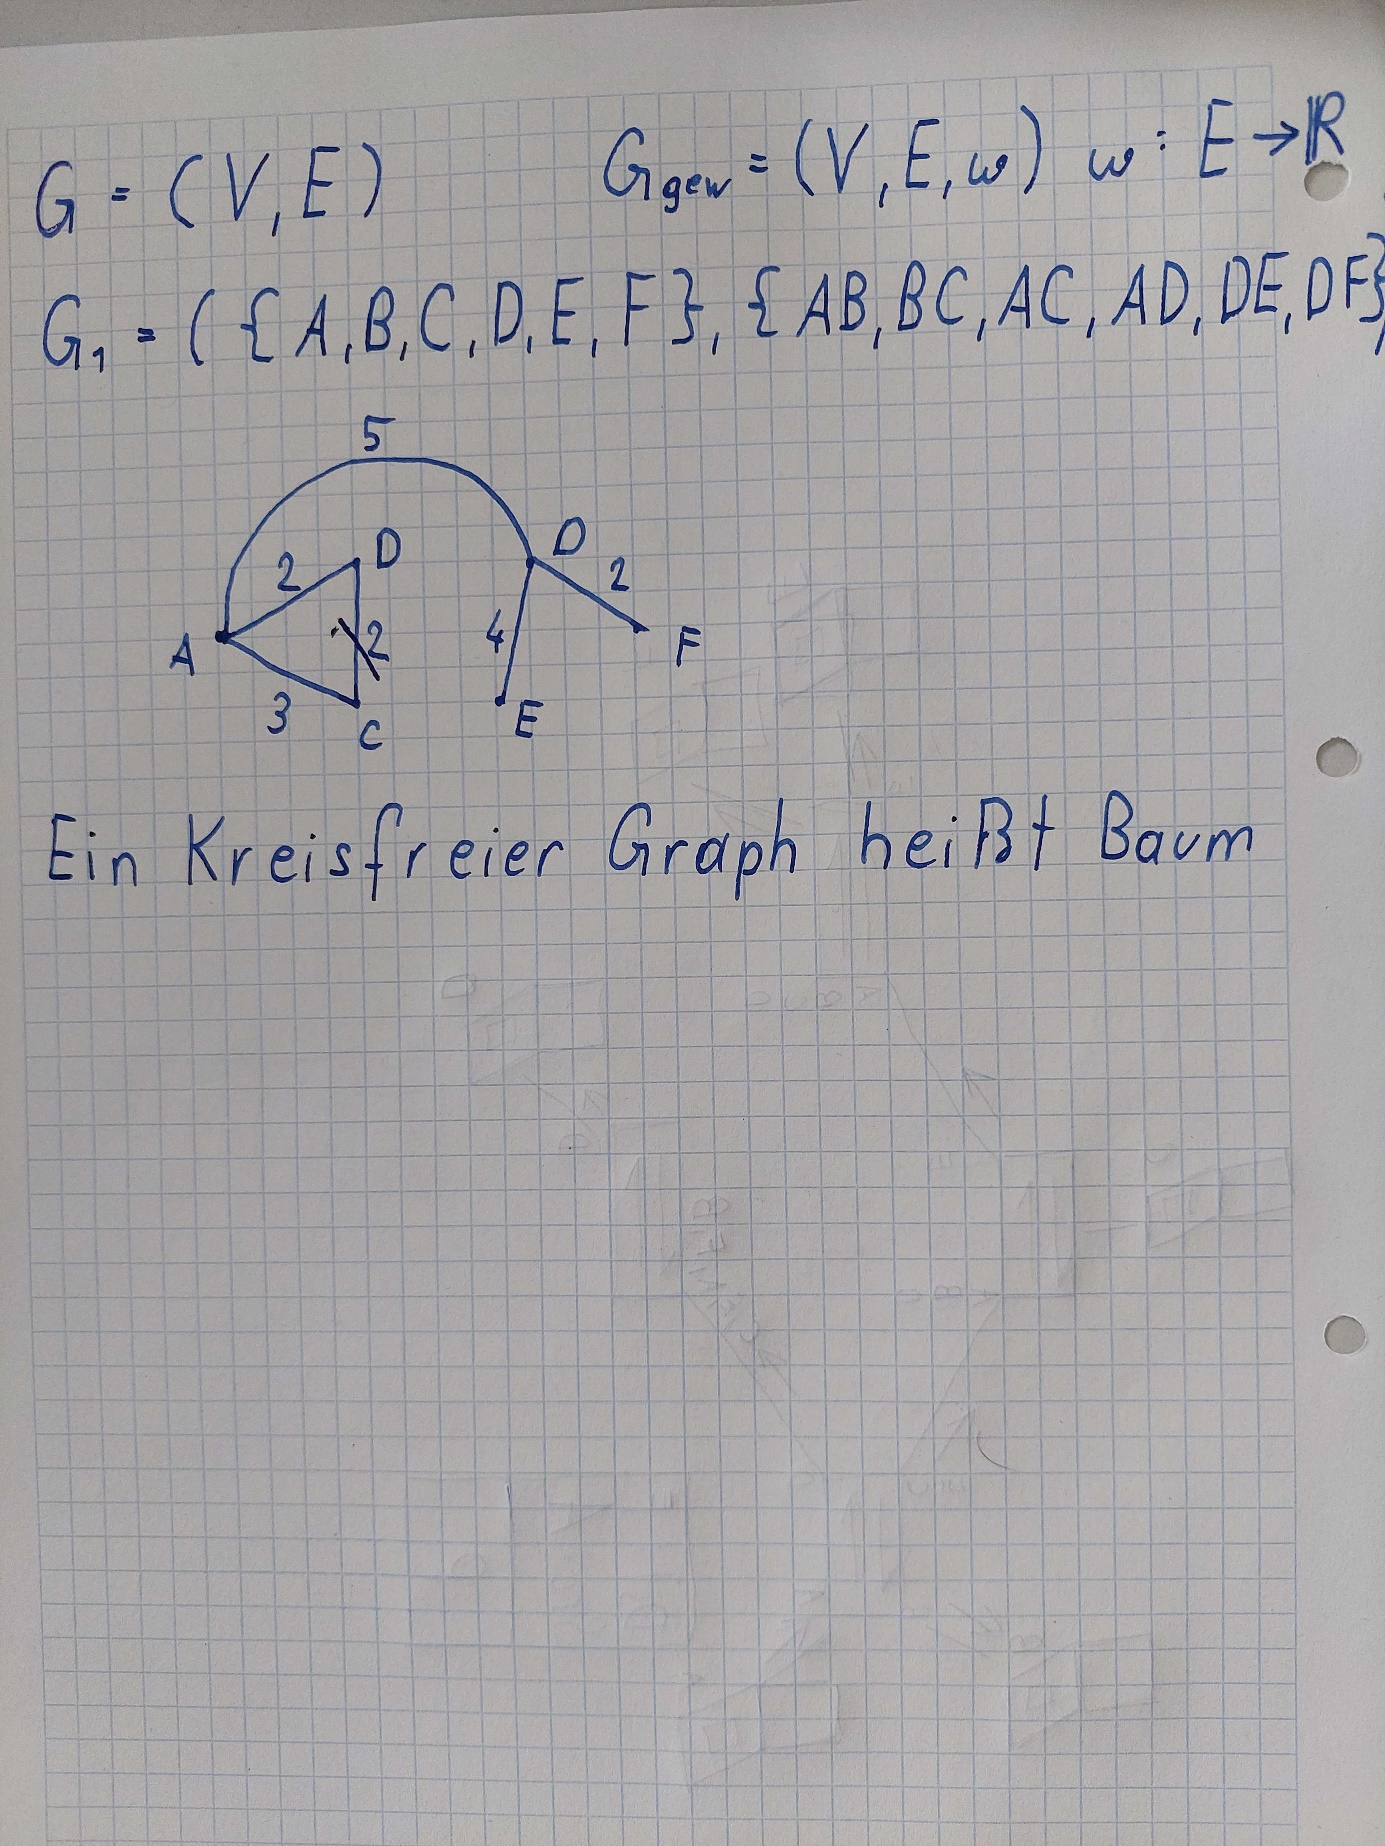 G = (V, E) G_gew = (V, E, w) w : E → ℝ
G₁ = ( { A, B, C, D, E, F }, { AB, BC, AC, AD, DE, DF }
5
D D
2 2
A 2 4 F
3 C E
Ein Kreisfreier Graph heißt Baum